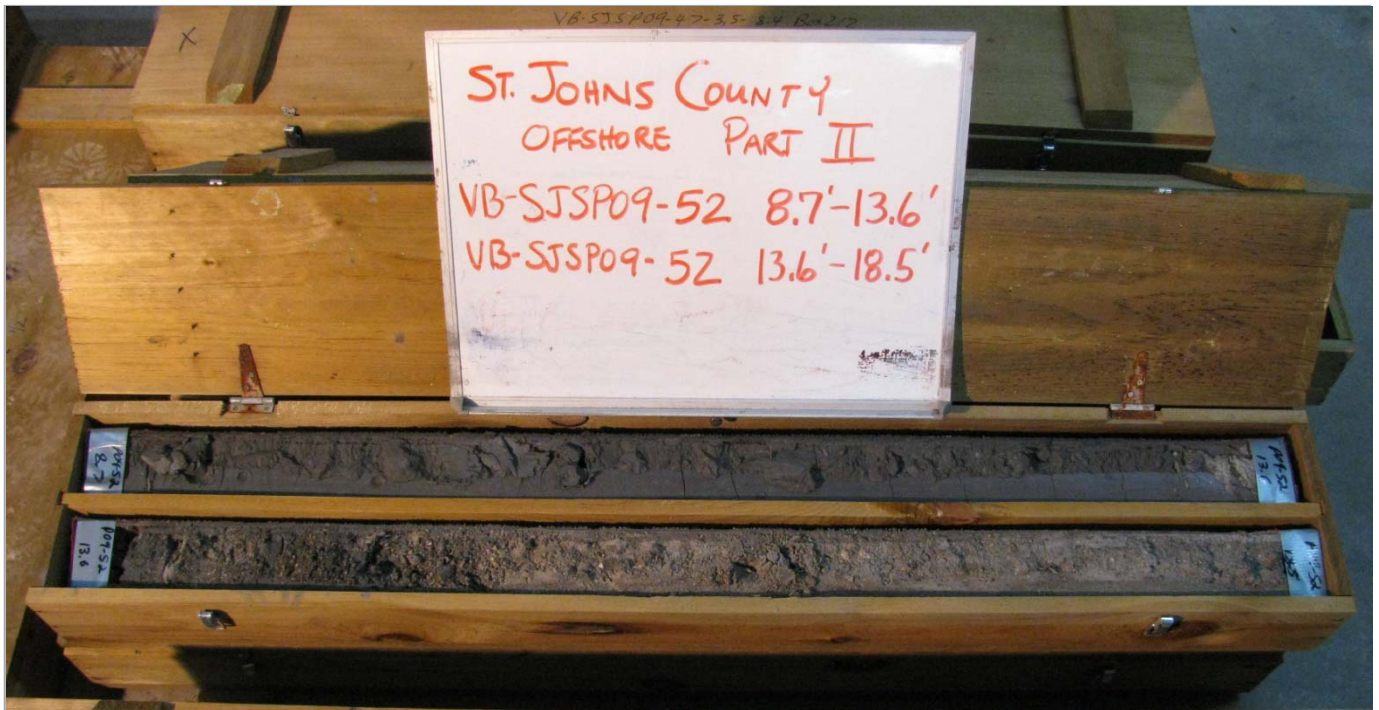 VB-SJSP09-47-3.5-8.4 Box 2/2
X
ST. JOHNS COUNTY
OFFSHORE PART II
VB-SJSP09-52 8.7'-13.6'
VB-SJSP09-52 13.6'-18.5'
P09-52
8.7
P09-52
13.6
P09-52
13.6